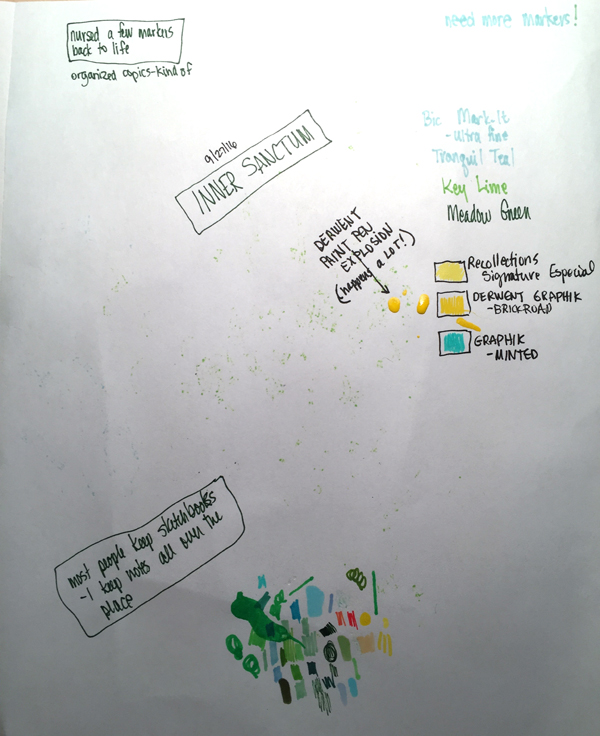 nursed a few markers
back to life
organized copics-kind of
need more markers!
9/27/16
INNER SANCTUM
Bic Mark-It
-ultra fine
Tranquil Teal
Key Lime
Meadow Green
DERWENT
PAINT PEN
EXPLOSION
(happens a LOT!)
Recollections
Signature Especial
DERWENT GRAPHIK
-BRICKROAD
GRAPHIK
-MINTED
most people keep sketchbooks
-I keep notes all over the
place